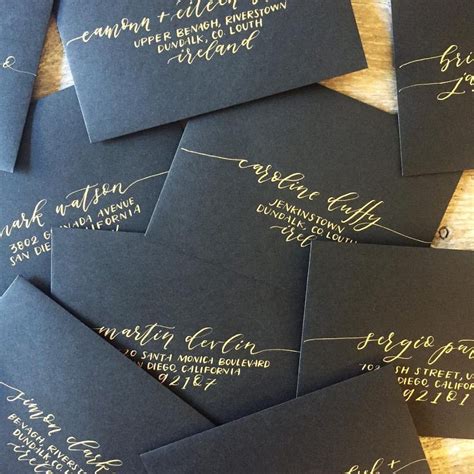 eamonn + eileen
UPPER BENAGH, RIVERSTOWN
DUNDALK, CO. LOUTH
ireland
mark watson
3802 GRANADA AVENUE
SAN DIEGO, CALIFORNIA
caroline duffy
JENKINSTOWN
DUNDALK, CO LOUTH
martin devlin
SANTA MONICA BOULEVARD
DIEGO, CALIFORNIA
92107
sergio
SH STREET,
DIEGO, CALIFORNIA
simon clark
BENAGH, RIVERSTOWN
DUNDALK, CO LOUTH